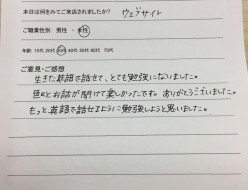 本日は何をみてご来店されましたか？ ウェブサイト
ご職業性別: 男性 ・ 女性
年齢: 10代 20代 30代 40代 50代 60代 70代
ご意見・ご感想
生きた英語で話せて、とても勉強になりました。
色々とお話が聞けて楽しかったです。ありがとうございました。
もっと英語で話せるように勉強しようと思いました。